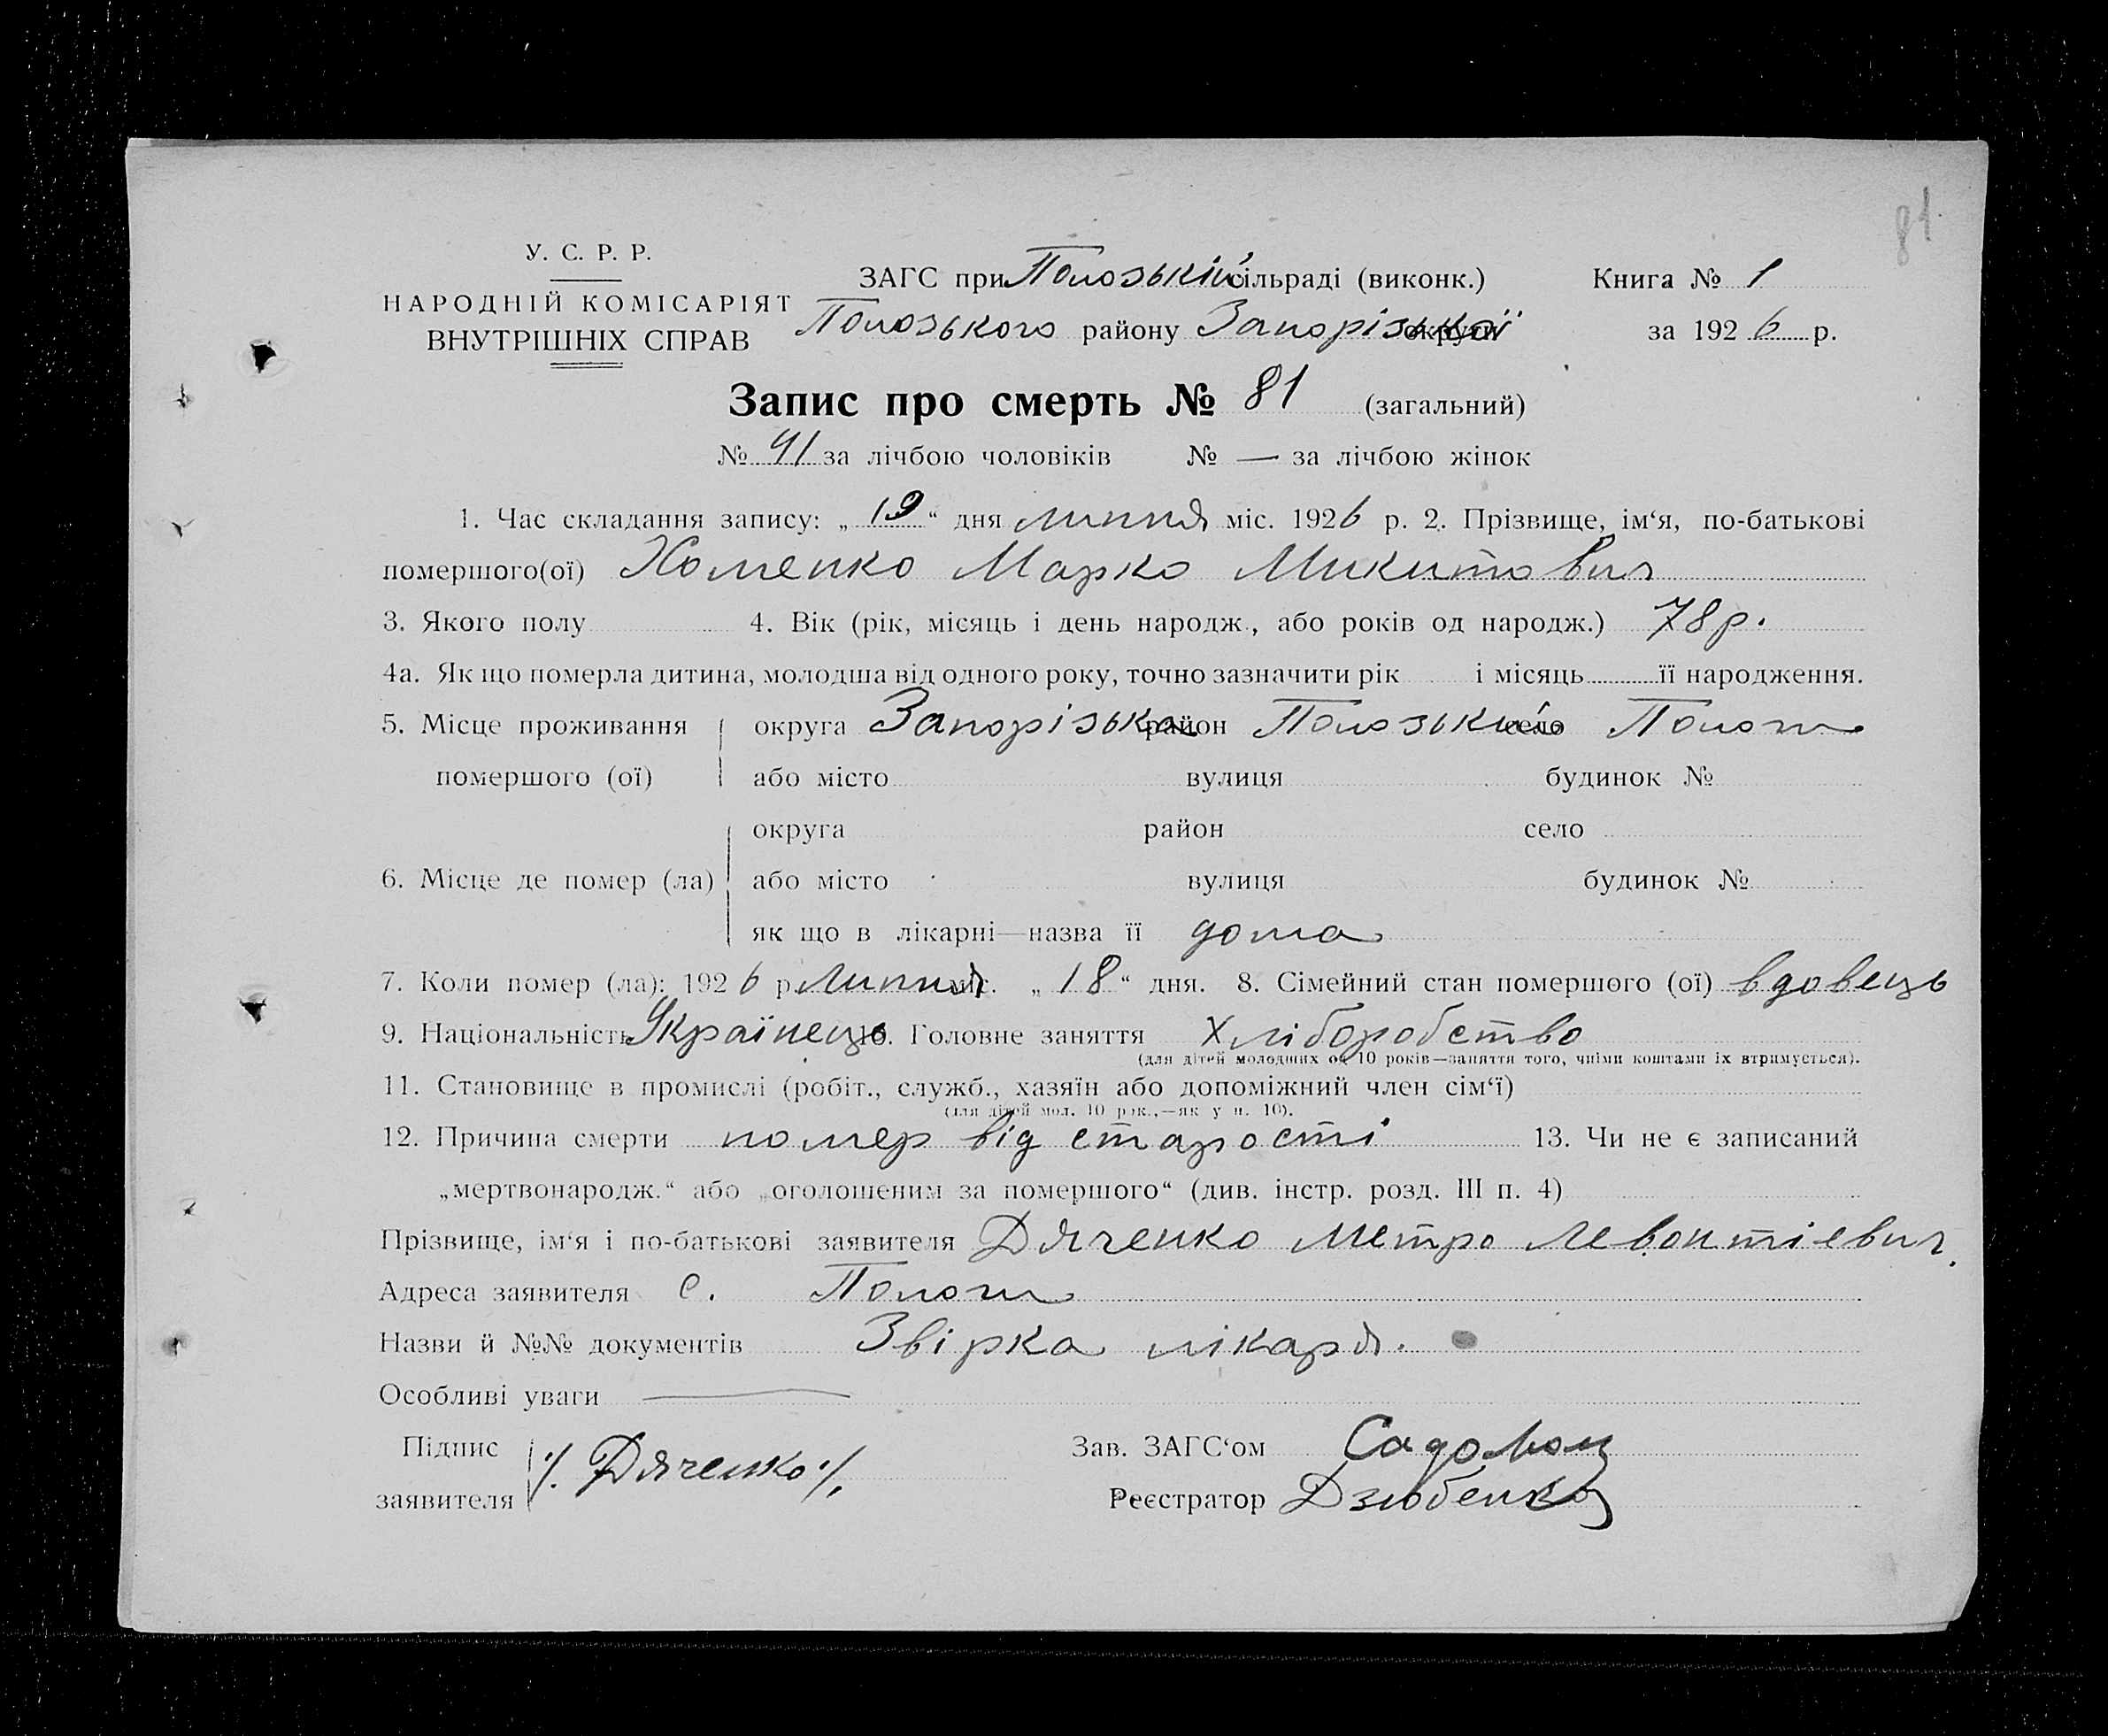 81
У. С. Р. Р.
НАРОДНІЙ КОМІСАРІЯТ
ВНУТРІШНІХ СПРАВ
ЗАГС при Пологській сільраді (виконк.) Книга № 1
Пологського району Запоріської округи за 1926 р.
Запис про смерть № 81 (загальний)
№ 41 за лічбою чоловіків № — за лічбою жінок
1. Час складання запису: „19“ дня липня міс. 1926 р. 2. Прізвище, ім‘я, по-батькові
помершого(ої) Хоменко Марко Микитович
3. Якого полу 4. Вік (рік, місяць і день народж., або років од народж.) 78 р.
4а. Як що померла дитина, молодша від одного року, точно зазначити рік і місяць її народження.
5. Місце проживання округа Запорізька район Пологський село Пологи
помершого (ої) або місто вулиця будинок №
округа район село
6. Місце де помер (ла) або місто вулиця будинок №
як що в лікарні—назва її дома
7. Коли помер (ла): 1926 р. Липня міс. „18“ дня. 8. Сімейний стан помершого (ої) вдовець
9. Національність Українець 10. Головне заняття Хліборобство
(для дітей молодших од 10 років—заняття того, чиїми коштами їх втримується).
11. Становище в промислі (робіт., служб., хазяїн або допоміжний член сім‘ї)
(для дітей мол. 10 рок.,—як у п. 10).
12. Причина смерти помер від старості 13. Чи не є записаний
„мертвонародж.“ або „оголошеним за помершого“ (див. інстр. розд. III п. 4)
Прізвище, ім‘я і по-батькові заявителя Дяченко Метро Левонтіевич.
Адреса заявителя с. Пологи
Назви й №№ документів Звірка лікаря.
Особливі уваги —
Підпис ./. Дяченко ./. Зав. ЗАГС‘ом
заявителя Реєстратор Дзюбенко